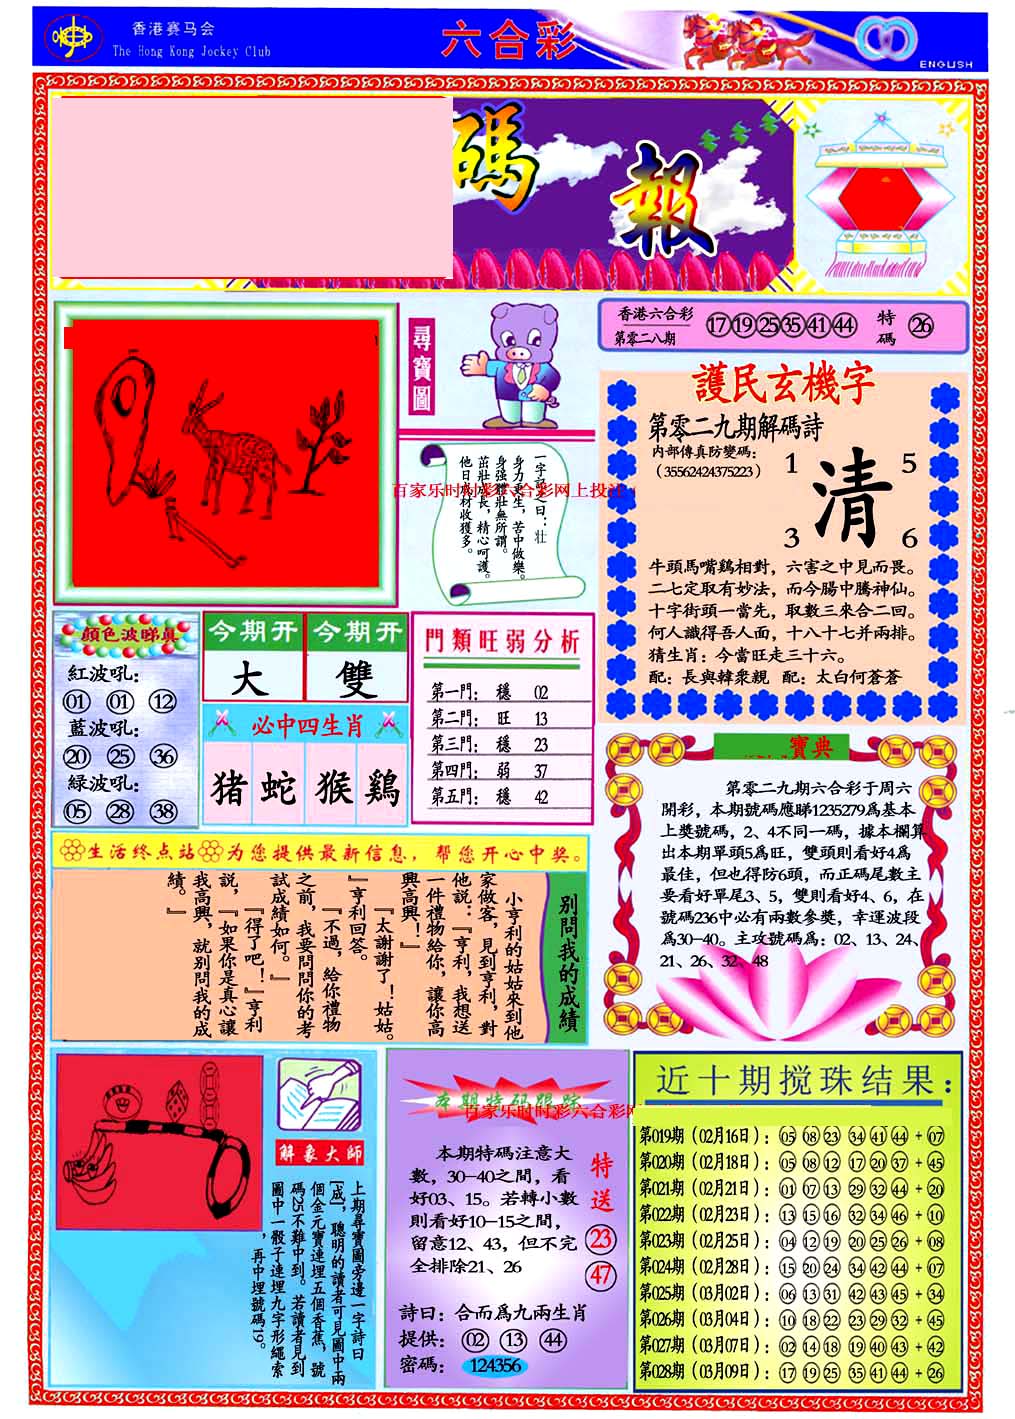 香港赛马会
The Hong Kong Jockey Club
六合彩
ENGLISH
碼報
尋寶圖
香港六合彩
第零二八期
17 19 25 35 41 44 特碼 26
護民玄機字
第零二九期解碼詩
内部傳真防變碼：
（35562424375223）
1 5
清
3 6
牛頭馬嘴鷄相對，六害之中見而畏。
二七定取有妙法，而今腸中騰神仙。
十字街頭一當先，取數三來合二回。
何人識得吾人面，十八十七并兩排。
猜生肖：今當旺走三十六。
配：長與韓衆親 配：太白何蒼蒼
一字記之曰：壯
身力更生，苦中做樂。
身强體壯無所謂。
茁壯成長，精心呵護。
他日成材收獲多。
百家乐时时彩六合彩网上投注
顔色波睇真
紅波吼：
01 01 12
藍波吼：
20 25 36
緑波吼：
05 28 38
今期开 今期开
大 雙
必中四生肖
猪 蛇 猴 鷄
門類旺弱分析
第一門： 穩 02
第二門： 旺 13
第三門： 穩 23
第四門： 弱 37
第五門： 穩 42
寶典
第零二九期六合彩于周六
開彩，本期號碼應睇1235279爲基本
上獎號碼，2、4不同一碼，據本欄算
出本期單頭5爲旺，雙頭則看好4爲
最佳，但也得防6頭，而正碼尾數主
要看好單尾3、5，雙則看好4、6，在
號碼236中必有兩數參獎，幸運波段
爲30-40。主攻號碼爲：02、13、24、
21、26、32、48
生活终点站 为您提供最新信息，帮您开心中奖。
别問我的成績
小亨利的姑姑來到他
家做客，見到亨利，對
他説：『亨利，我想送
一件禮物給你，讓你高
興高興！』
『太謝謝了！姑姑。
』亨利回答。
『不過，給你禮物
之前，我要問問你的考
試成績如何。』
『得了吧！』亨利
説，『如果你是真心讓
我高興，就别問我的成
績。』
解象大師
上期尋寶圖旁邊一字詩曰
[成]，聰明的讀者可見圖中兩
個金元寶連埋五個香蕉，號
碼25不難中到。若讀者見到
圖中一骰子連埋九字形繩索
，再中埋號碼19。
本期特码跟踪
百家乐时时彩六合彩网
本期特碼注意大
數，30-40之間，看
好03、15。若轉小數
則看好10-15之間，
留意12、43，但不完
全排除21、26
特送
23
47
詩曰：合而爲九兩生肖
提供： 02 13 44
密碼： 124356
近十期搅珠结果：
第019期（02月16日）：05 08 23 34 41 44 + 07
第020期（02月18日）：05 08 12 17 20 37 + 45
第021期（02月21日）：01 07 13 29 32 44 + 20
第022期（02月23日）：13 15 16 32 34 46 + 10
第023期（02月25日）：04 12 19 20 25 26 + 08
第024期（02月28日）：15 20 24 34 42 44 + 07
第025期（03月02日）：06 13 31 42 43 45 + 34
第026期（03月04日）：10 18 22 23 29 32 + 45
第027期（03月07日）：02 14 18 19 40 43 + 42
第028期（03月09日）：17 19 25 35 41 44 + 26